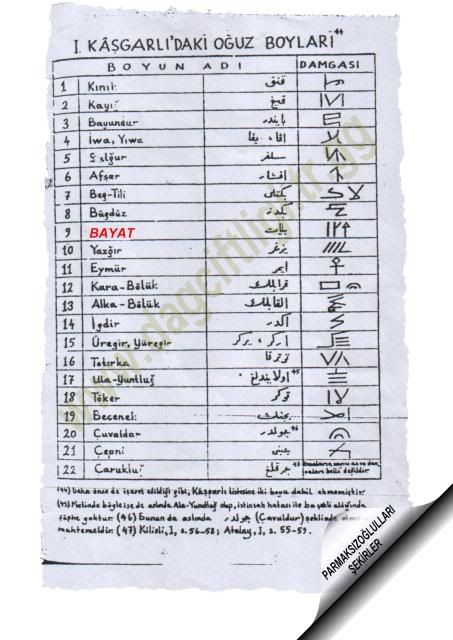 I. KÂŞGARLI'DAKİ OĞUZ BOYLARI⁴⁴
BOYUN ADI DAMGASI
1 Kınık قنق
2 Kayıġ قيغ
3 Bayundur بايندر
4 İwa, Yıwa افا، يفا
5 Salğur سلغر
6 Afşar افشار
7 Beg-Tili بكتلى
8 Bügdüz بكدز
9 BAYAT بيات
10 Yazğır يزغر
11 Eymür ايمر
12 Kara-Bölük قرابلك
13 Alka-Bölük القابلك
14 İgdir اكدر
15 Üregir, Yüregir اركر، يركر
16 Totırka توترقا
17 Ula-Yuntluğ اولايندلغ ⁴⁵
18 Töker توكر
19 Beçenek بجنك
20 Çuvaldar جولدر ⁴⁶
21 Çepni جبنى
22 Çarukluğ جرقلغ ⁴⁷
(44) Daha önce de işaret edildiği gibi, Kâşgarlı listesine iki boyu dahil etmemiştir.
(45) Metinde böyle ise de aslında Ala-Yundluğ olup, istinsah hatası ile bu şekli aldığında
şüphe yoktur. (46) Bunun da aslında جولدر (Çavuldur) şeklinde olması
muhtemeldir. (47) Kilisli, I, s. 56-58; Atalay, I, s. 55-59.
www.dagciftligi.tr.gg
PARMAKSIZOĞLULLARI
ŞEKİRLER